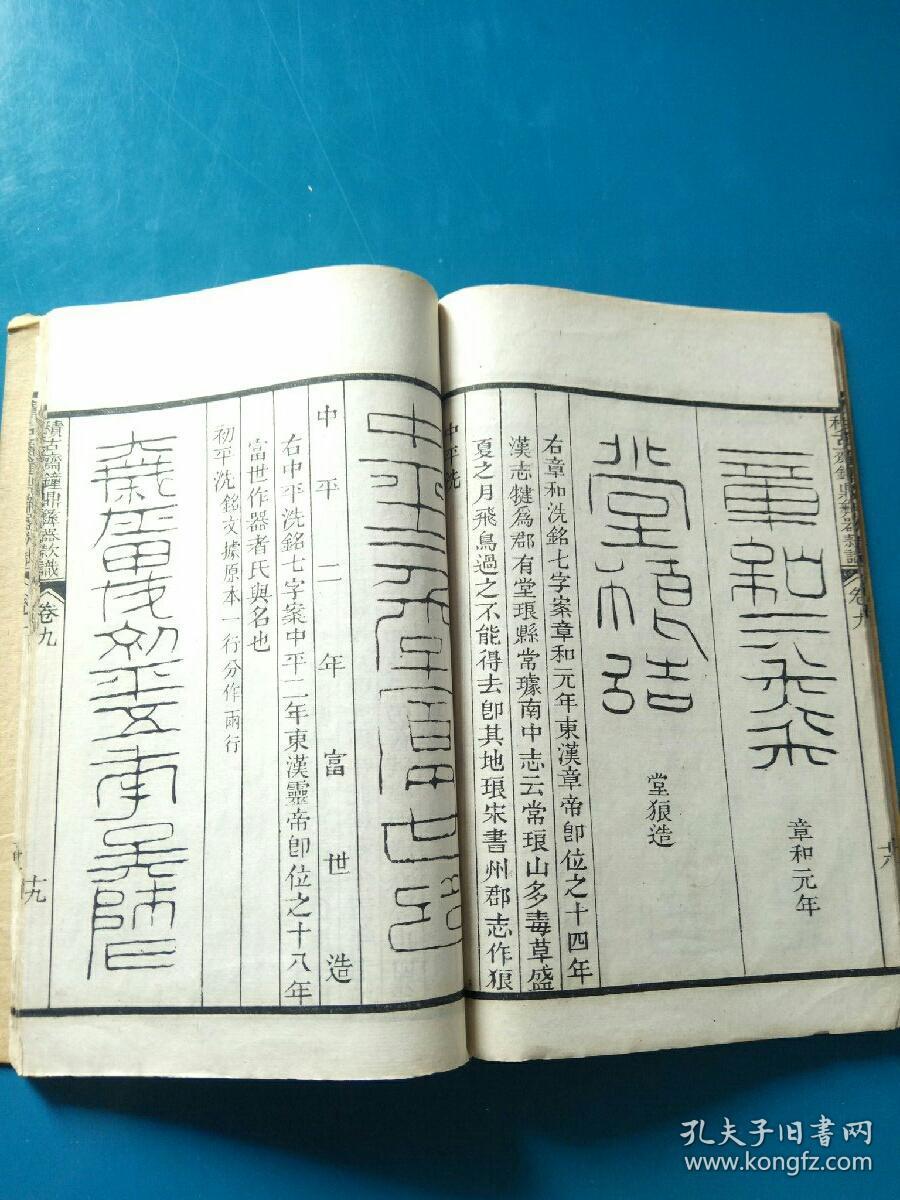 章和元年
章和元年
堂狼造
堂狼造
右章和洗銘七字案章和元年東漢章帝卽位之十四年
漢志犍爲郡有堂琅縣常璩南中志云常琅山多毒草盛
夏之月飛鳥過之不能得去卽其地琅宋書州郡志作狼
中平洗
中平二年富世造
中平二年富世造
右中平洗銘七字案中平二年東漢靈帝卽位之十八年
富世作器者氏與名也
初平洗銘文據原本一行分作兩行
初平五年吳師
積古齋鐘鼎彝器款識
卷九
十九
積古齋鐘鼎彝器款識
卷九
孔夫子旧书网
www.kongfz.com